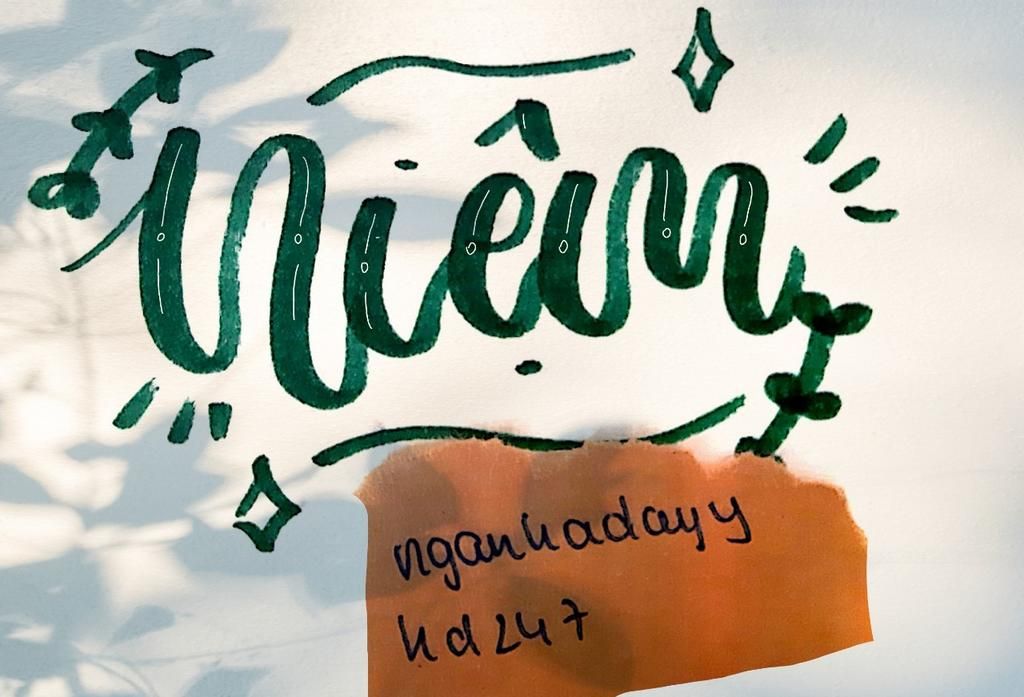 Niệm
nganhadayy
hd247